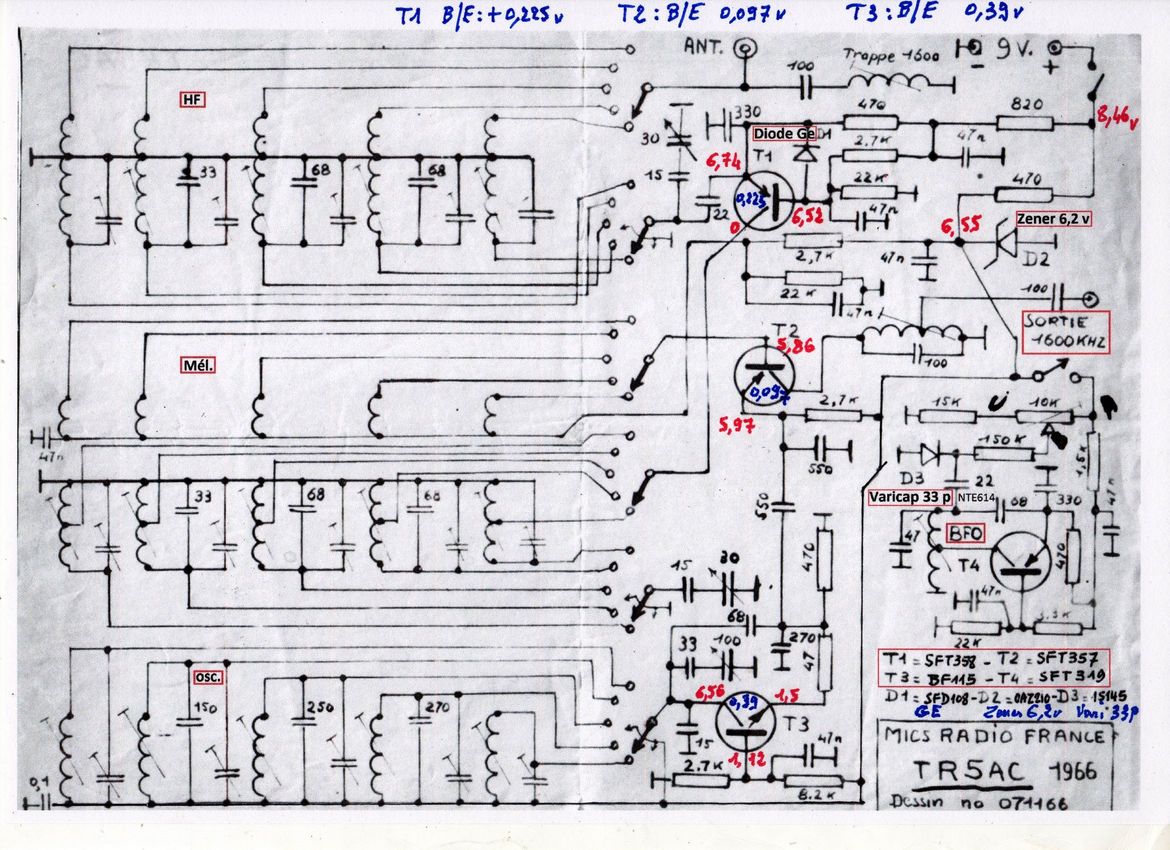 T1 B/E:+0,225v T2:B/E 0,097v T3:B/E 0,39v
ANT.
Trappe 1600
9V.
-
+
100
HF
330
30
Diode Ge D1
470
820
8,46v
2.7K
47n
6,74
T1
15
22K
470
33
68
68
0,225
22
6,52
47n
0
6,55
Zener 6,2 v
2,7K
47n
D2
22K
47n
100
SORTIE
1600KHZ
T2
5,86
100
Mél.
0,097
2,7K
5,97
15K
10K
47n
550
150K
1,5K
D3
22
33
68
68
550
Varicap 33 p
NTE614
68
330
47n
47
BFO
470
T4
15
30
47n
68
22K
3.3K
270
33
100
47
osc.
T1=SFT358-T2=SFT357
T3=BF115-T4=SFT319
6,56
0,39
1,5
D1=SFD108-D2=OAZ210-D3=1S145
150
250
270
T3
GE Zener 6,2v Vari 33p
15
1,12
47n
MICS RADIO FRANCE
0,1
2.7K
8.2K
TR5AC 1966
Dessin no 071166